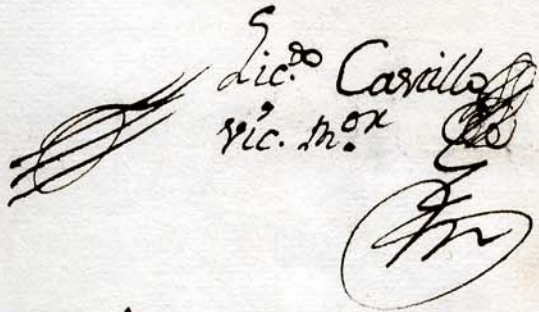 Lic.do Carrillo
Vic. m.or